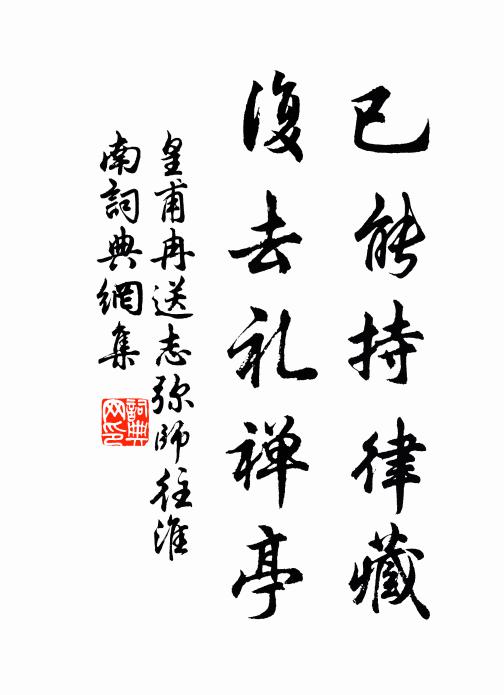 已能持律藏
復去礼禅亭
皇甫冉送志弥師往淮
南詞典網集
詞典
网印